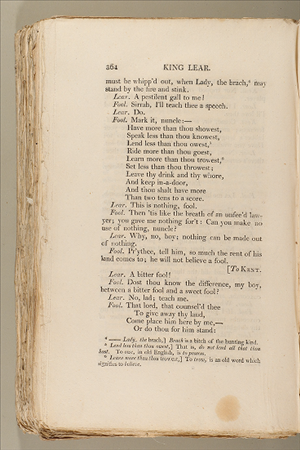 264 KING LEAR.
must be whipp'd out, when Lady, the brach,⁸ may
stand by the fire and stink.
Lear. A pestilent gall to me!
Fool. Sirrah, I'll teach thee a speech.
Lear. Do.
Fool. Mark it, nuncle:—
Have more than thou showest,
Speak less than thou knowest,
Lend less than thou owest,⁹
Ride more than thou goest,
Learn more than thou trowest,
Set less than thou throwest;
Leave thy drink and thy whore,
And keep in-a-door,
And thou shalt have more
Than two tens to a score.
Lear. This is nothing, fool.
Fool. Then 'tis like the breath of an unfee'd law-
yer; you gave me nothing for't: Can you make no
use of nothing, nuncle?
Lear. Why, no, boy; nothing can be made out
of nothing.
Fool. Pr'ythee, tell him, so much the rent of his
land comes to; he will not believe a fool.
[To KENT.
Lear. A bitter fool!
Fool. Dost thou know the difference, my boy,
between a bitter fool and a sweet fool?
Lear. No, lad; teach me.
Fool. That lord, that counsel'd thee
To give away thy land,
Come place him here by me,—
Or do thou for him stand:
⁸ —— Lady, the brach,] Brach is a bitch of the hunting kind.
⁹ Lend less than thou owest,] That is, do not lend all that thou
hast. To owe, in old English, is to possess.
Learn more than thou trowest,] To trow, is an old word which
signifies to believe.